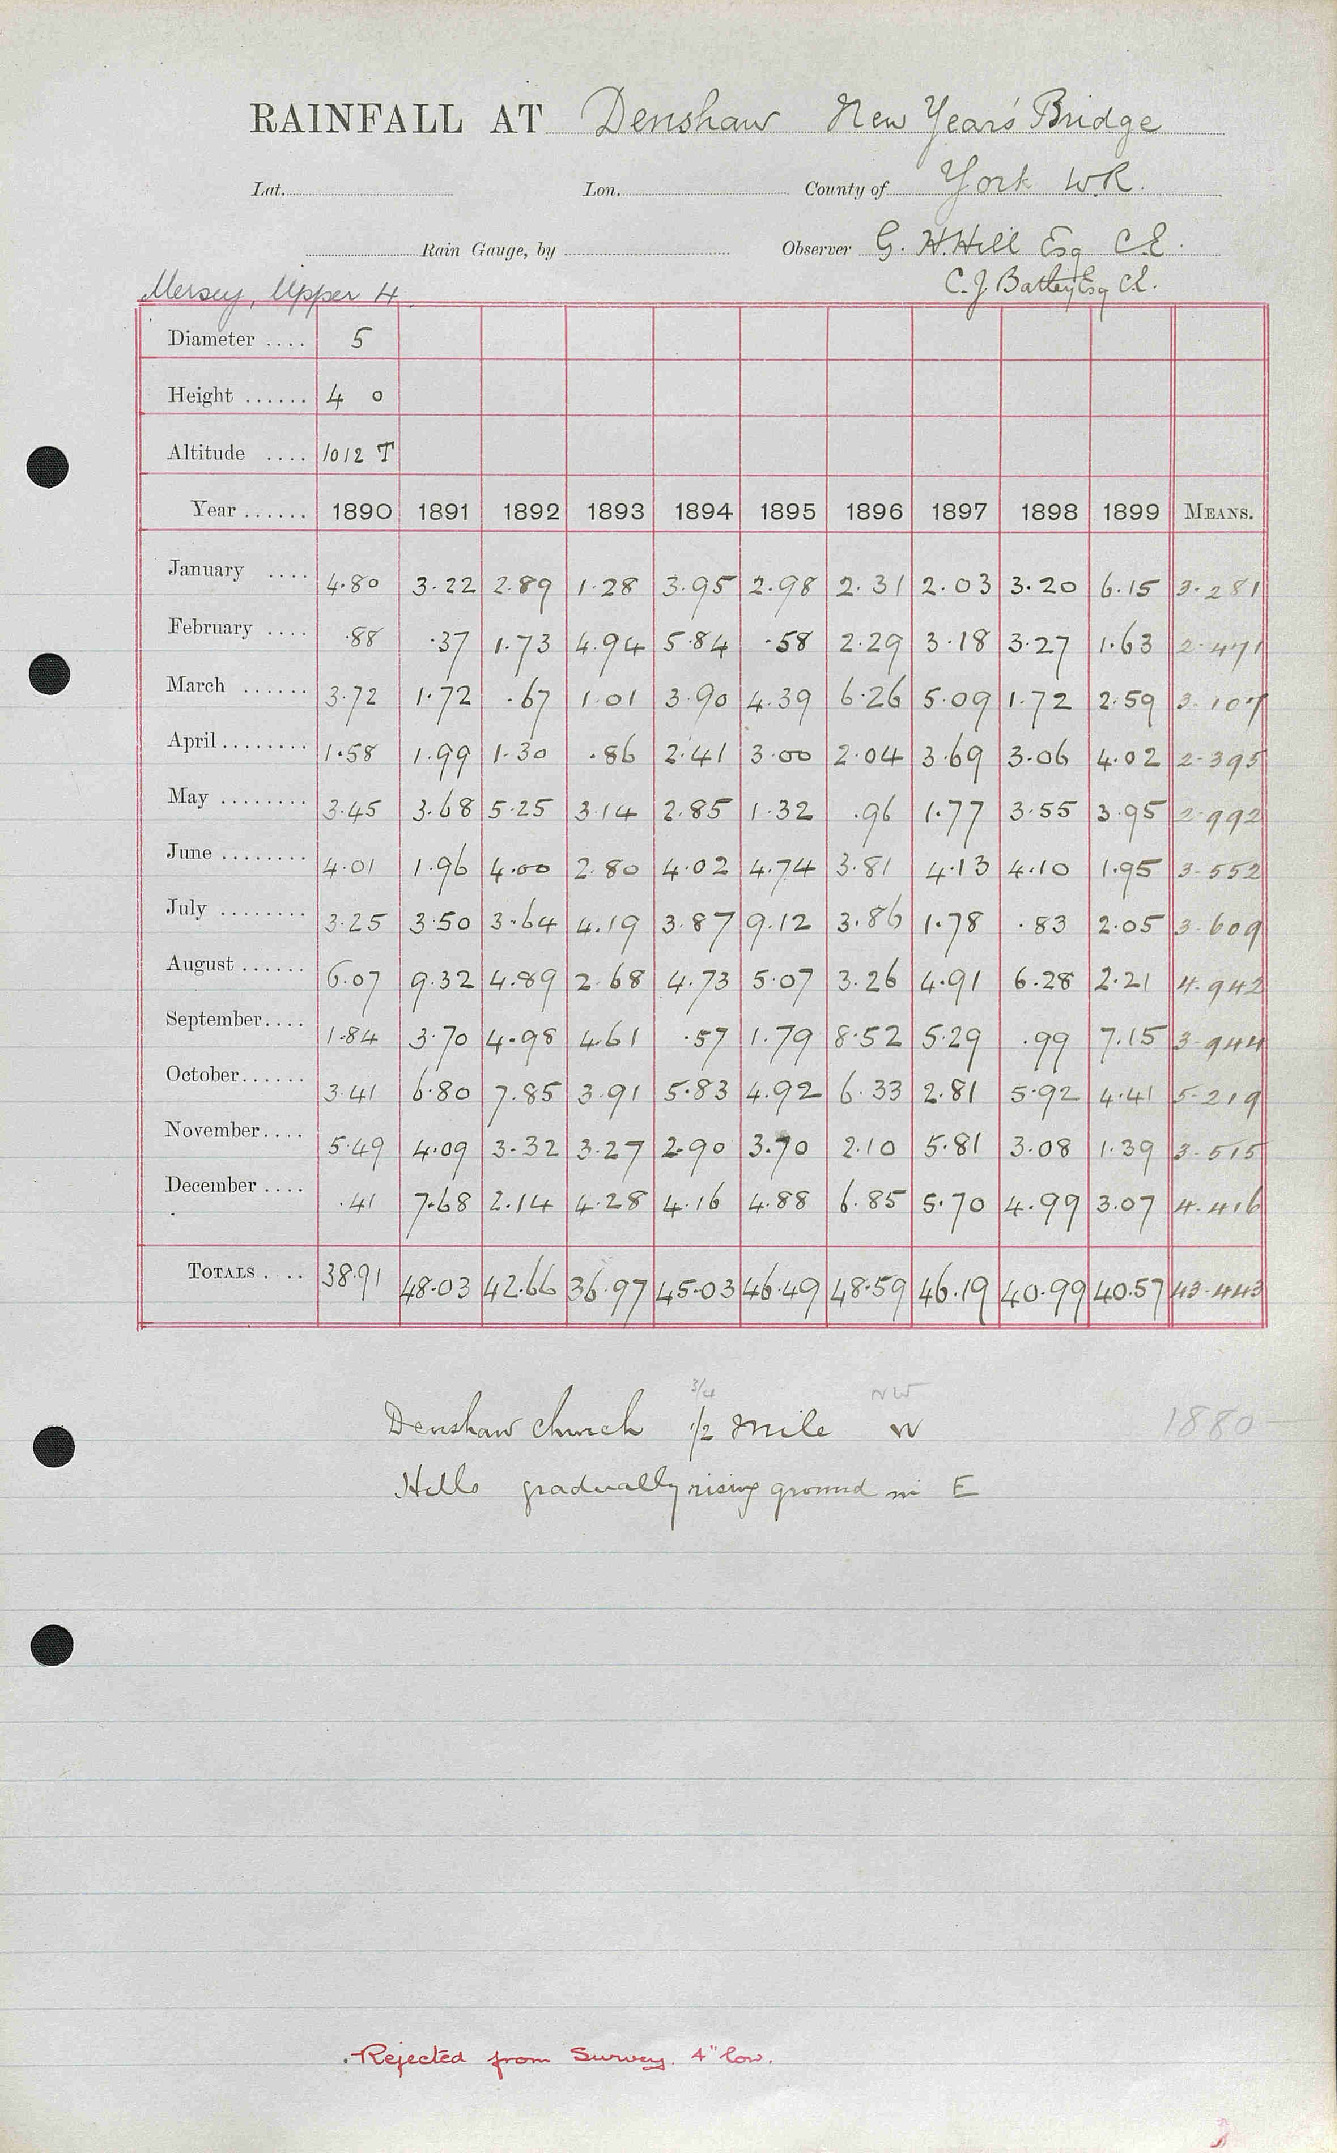 RAINFALL AT Denshaw New Year's Bridge
Lat. Lon. County of York W.R.
Rain Gauge, by Observer G. H. Hill Esq C.E.
Mersey, Upper 4. C. J. Batley Esq CE.
Diameter .... 5
Height ...... 4 0
Altitude .... 1012 T
Year ...... 1890 1891 1892 1893 1894 1895 1896 1897 1898 1899 MEANS.
January .... 4.80 3.22 2.89 1.28 3.95 2.98 2.31 2.03 3.20 6.15 3.281
February .... .88 .37 1.73 4.94 5.84 .58 2.29 3.18 3.27 1.63 2.471
March ...... 3.72 1.72 .67 1.01 3.90 4.39 6.26 5.09 1.72 2.59 3.107
April ........ 1.58 1.99 1.30 .86 2.41 3.00 2.04 3.69 3.06 4.02 2.395
May ........ 3.45 3.68 5.25 3.14 2.85 1.32 .96 1.77 3.55 3.95 2.992
June ........ 4.01 1.96 4.00 2.80 4.02 4.74 3.81 4.13 4.10 1.95 3.552
July ........ 3.25 3.50 3.64 4.19 3.87 9.12 3.86 1.78 .83 2.05 3.609
August ...... 6.07 9.32 4.89 2.68 4.73 5.07 3.26 4.91 6.28 2.21 4.942
September .... 1.84 3.70 4.98 4.61 .57 1.79 8.52 5.29 .99 7.15 3.944
October ...... 3.41 6.80 7.85 3.91 5.83 4.92 6.33 2.81 5.92 4.41 5.219
November .... 5.49 4.09 3.32 3.27 2.90 3.70 2.10 5.81 3.08 1.39 3.515
December .... .41 7.68 2.14 4.28 4.16 4.88 6.85 5.70 4.99 3.07 4.416
TOTALS .... 38.91 48.03 42.66 36.97 45.03 46.49 48.59 46.19 40.99 40.57 43.443
3/4 NW
Denshaw Church 1/2 mile W 1880—
Hills gradually rising ground in E
Rejected from Survey. 4" low.